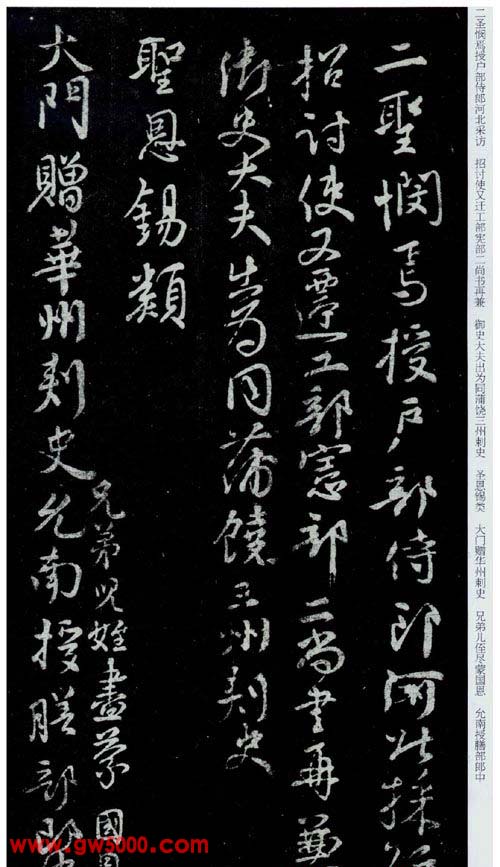 二聖憫焉授戶部侍郎河北採訪
招討使又遷工部憲部二尚書再兼
御史大夫出為同蒲饒三州刺史
聖恩錫類
大門贈華州刺史
兄弟兒姪盡蒙國恩
允南授膳部郎中
二圣悯焉授户部侍郎河北采访 招讨使又迁工部宪部二尚书再兼 御史大夫出为同蒲饶三州刺史 圣恩锡类 大门赠华州刺史 兄弟儿侄尽蒙国恩 允南授膳部郎中
www.gw5000.com